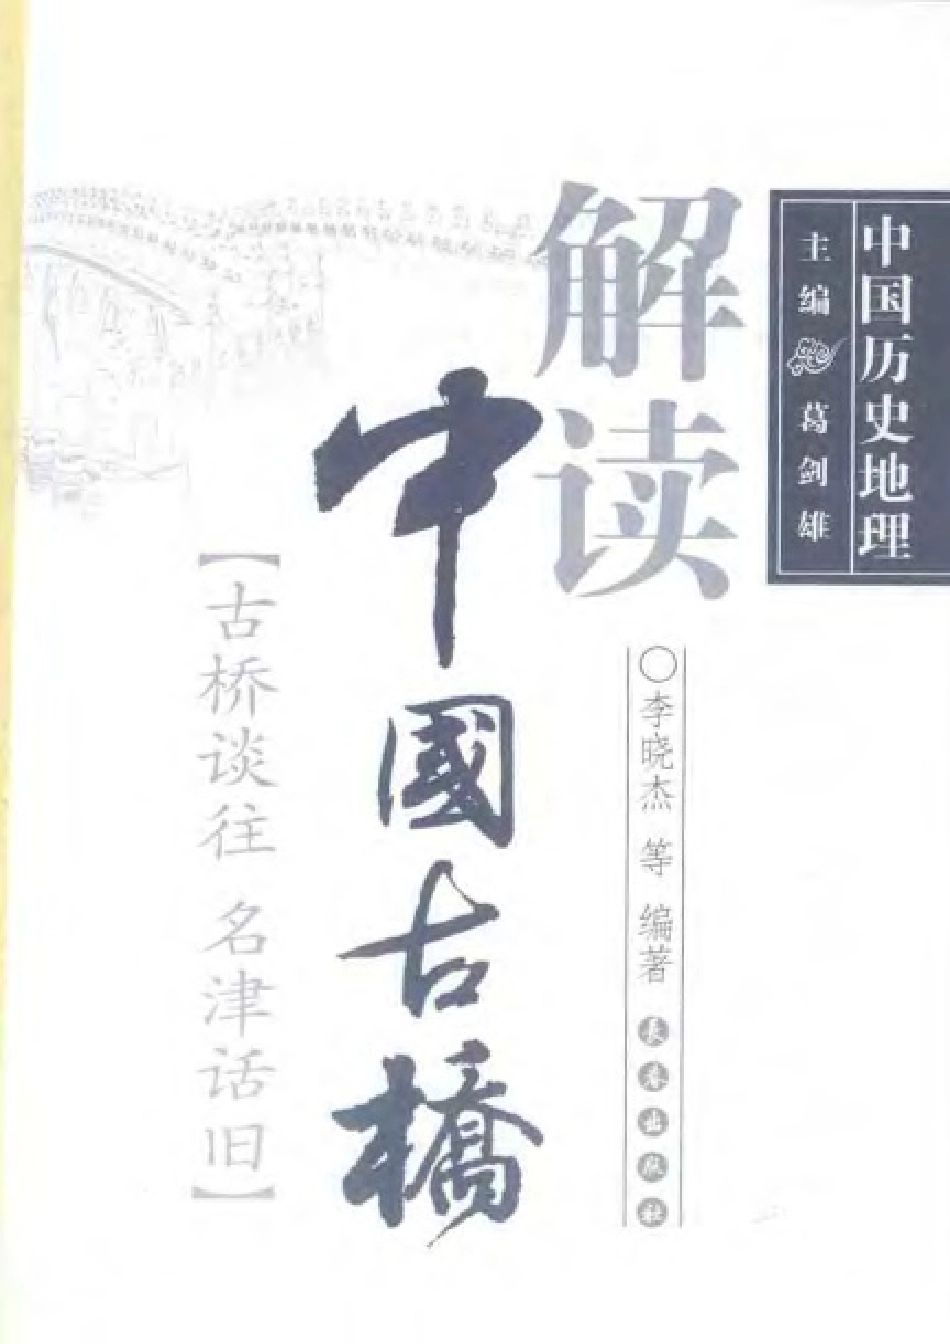 中国历史地理
主编 葛剑雄
解读
中國古橋
【古桥谈往 名津话旧】
○李晓杰 等 编著 长春出版社